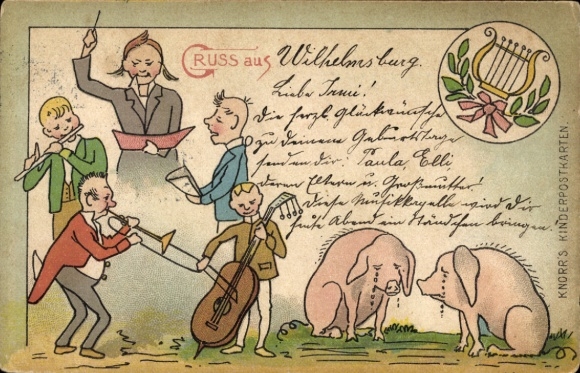 GRUSS aus Wilhelmsburg.
Liebe Irmi!
Die herzl. Glückwünsche
zu deinem Geburtstage
senden dir: Paula Elli
deren Eltern u. Großmutter!
Diese Musikkapelle wird dir
heute Abend ein Ständchen bringen.
KNORR'S KINDERPOSTKARTEN.